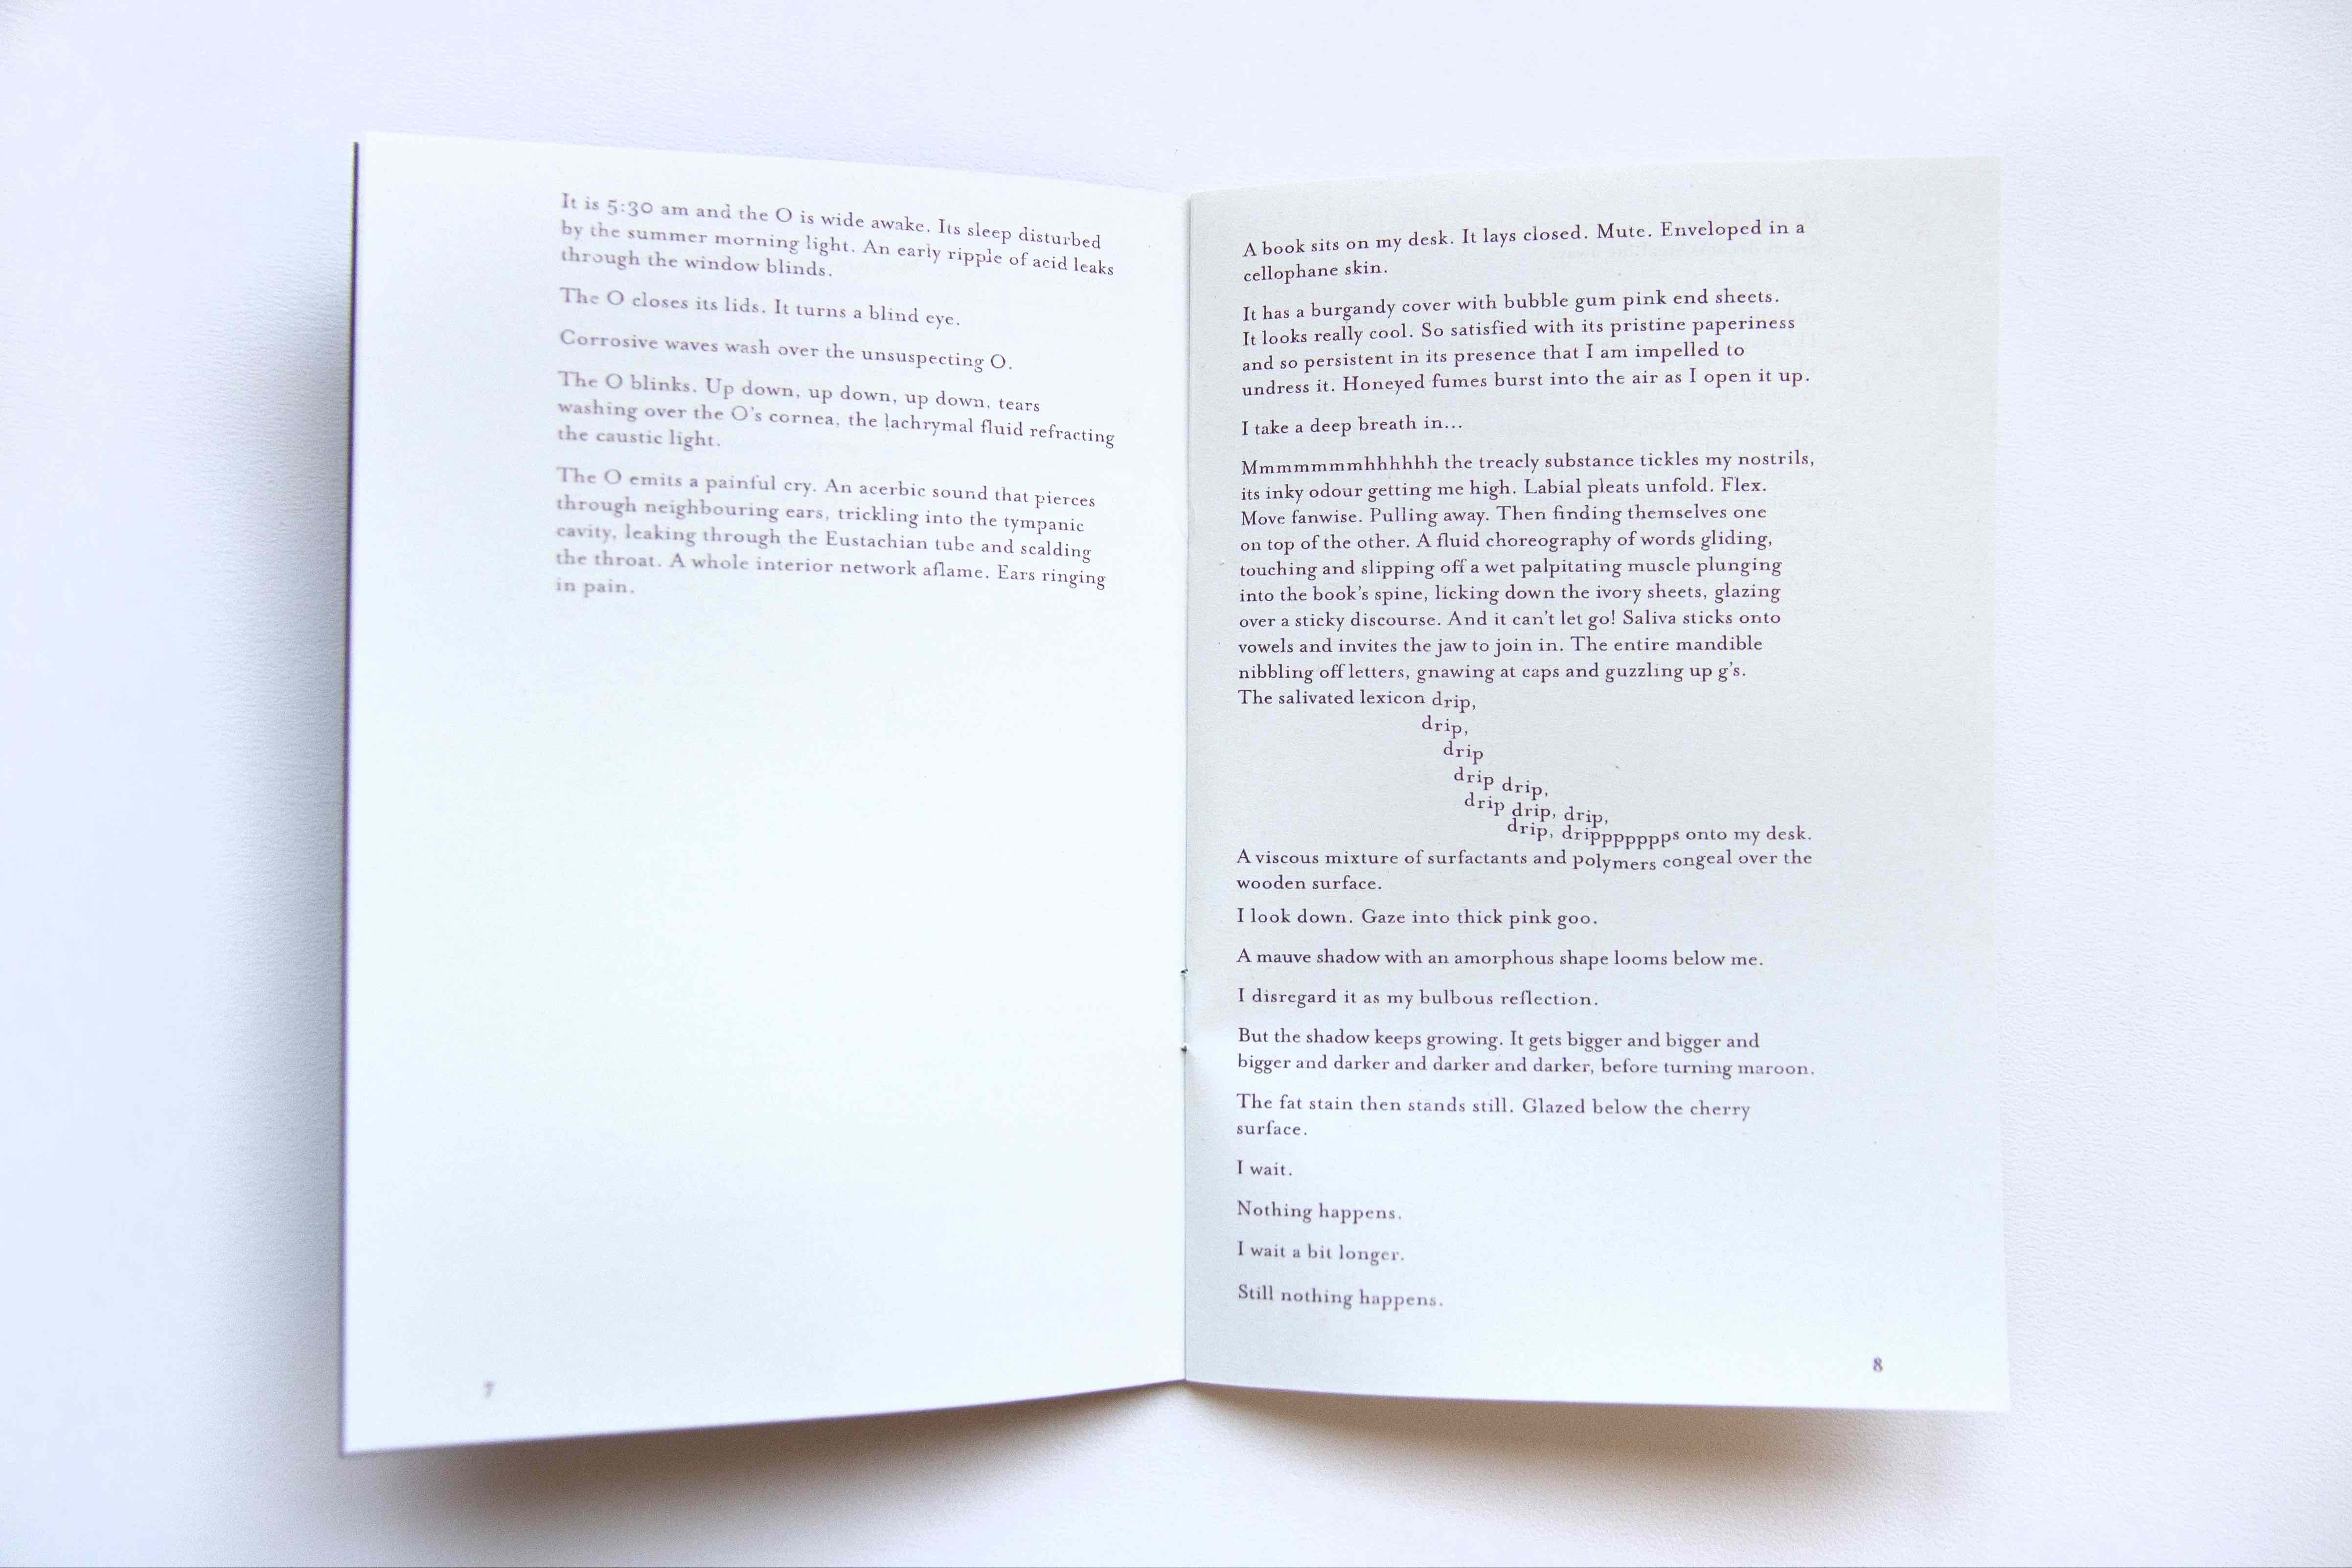 It is 5:30 am and the O is wide awake. Its sleep disturbed
by the summer morning light. An early ripple of acid leaks
through the window blinds.
The O closes its lids. It turns a blind eye.
Corrosive waves wash over the unsuspecting O.
The O blinks. Up down, up down, up down, tears
washing over the O's cornea, the lachrymal fluid refracting
the caustic light.
The O emits a painful cry. An acerbic sound that pierces
through neighbouring ears, trickling into the tympanic
cavity, leaking through the Eustachian tube and scalding
the throat. A whole interior network aflame. Ears ringing
in pain.
7
A book sits on my desk. It lays closed. Mute. Enveloped in a
cellophane skin.
It has a burgandy cover with bubble gum pink end sheets.
It looks really cool. So satisfied with its pristine paperiness
and so persistent in its presence that I am impelled to
undress it. Honeyed fumes burst into the air as I open it up.
I take a deep breath in...
Mmmmmmmhhhhhh the treacly substance tickles my nostrils,
its inky odour getting me high. Labial pleats unfold. Flex.
Move fanwise. Pulling away. Then finding themselves one
on top of the other. A fluid choreography of words gliding,
touching and slipping off a wet palpitating muscle plunging
into the book's spine, licking down the ivory sheets, glazing
over a sticky discourse. And it can't let go! Saliva sticks onto
vowels and invites the jaw to join in. The entire mandible
nibbling off letters, gnawing at caps and guzzling up g's.
The salivated lexicon drip,
drip,
drip
drip drip,
drip drip, drip,
drip, dripppppppps onto my desk.
A viscous mixture of surfactants and polymers congeal over the
wooden surface.
I look down. Gaze into thick pink goo.
A mauve shadow with an amorphous shape looms below me.
I disregard it as my bulbous reflection.
But the shadow keeps growing. It gets bigger and bigger and
bigger and darker and darker and darker, before turning maroon.
The fat stain then stands still. Glazed below the cherry
surface.
I wait.
Nothing happens.
I wait a bit longer.
Still nothing happens.
8